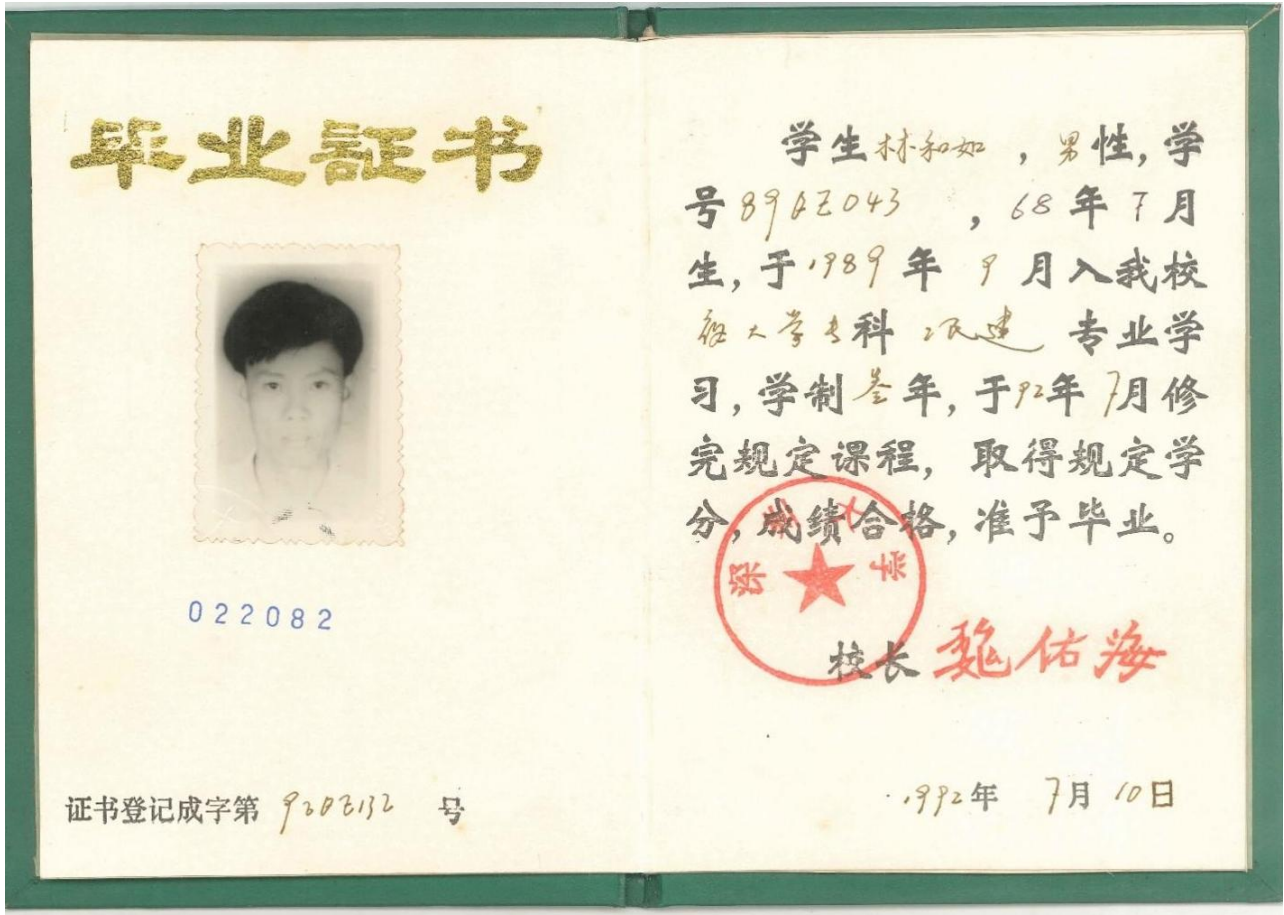 毕业証书
022082
证书登记成字第 920Z132 号
学生林和如，男性，学
号89 Z043，68年7月
生，于1989年9月入我校
夜大学专科 建 专业学
习，学制叁年，于92年7月修
完规定课程，取得规定学
分，成绩合格，准予毕业。
深圳大学
校长 魏佑海
1992年7月10日